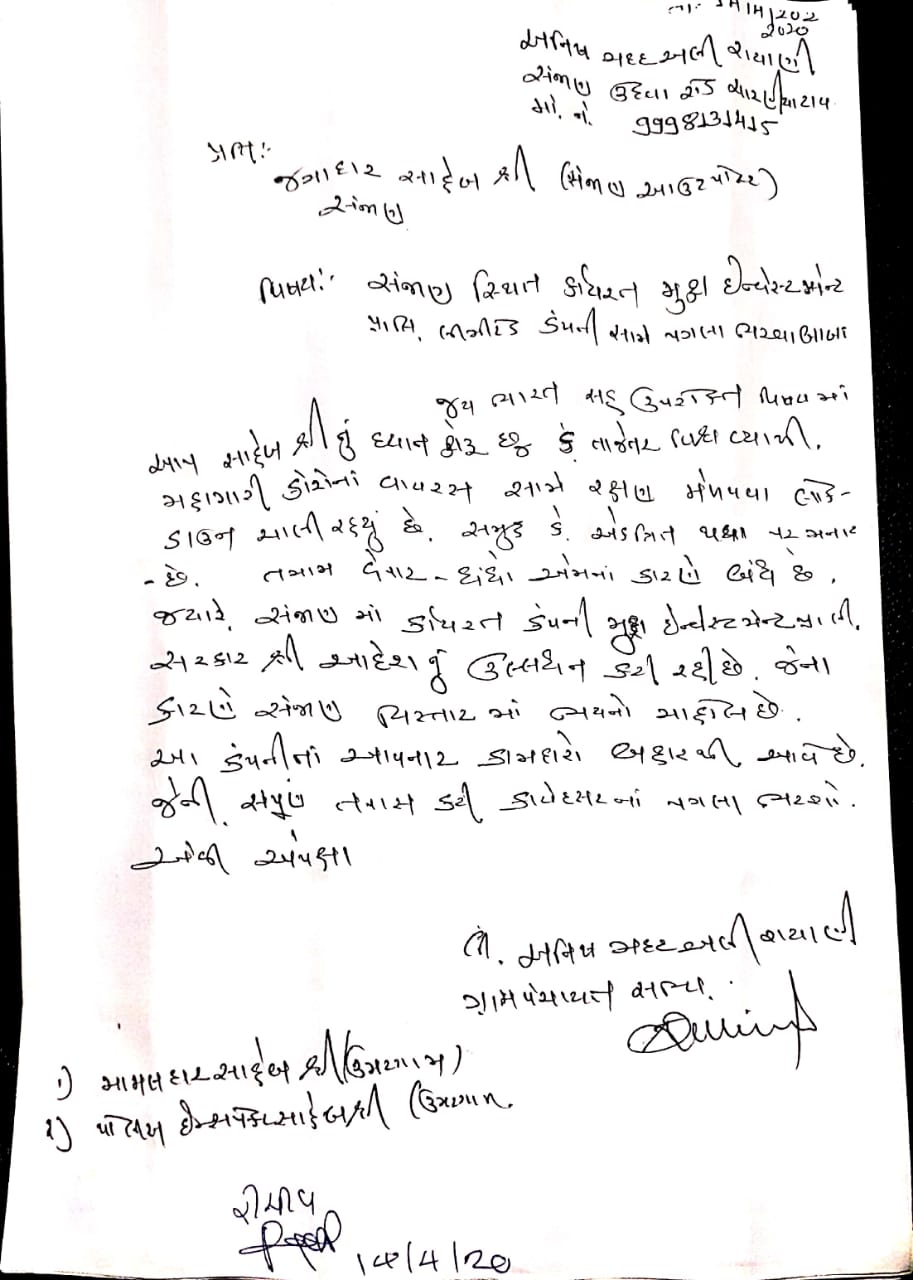 તા. 14/4/202
2020
અનિષ મદદઅલી રાયાણી
સંજાણ ઉદવા રોડ
મો. નં. 9998131415
પ્રતિ:
જમાદાર સાહેબ શ્રી (સંજાણ આઉટ પોસ્ટ)
સંજાણ
વિષય: સંજાણ સ્થિત કાર્યરત મુક્ષ ઈન્વેસ્ટમેન્ટ
પ્રા.લિ. લીમીટેડ કંપની સામે પગલા ભરવા બાબત
જય ભારત સહ ઉપરોક્ત વિષય માં
આપ સાહેબ શ્રી નું ધ્યાન દોરૂ છું કે તાજેતર વિશ્વ વ્યાપી.
મહામારી કોરોનાં વાયરસ સામે રક્ષણ મેળવવા લોક-
ડાઉન ચાલી રહ્યું છે. સમુહ કે. એકત્રિત થવા પર મનાઇ
- છે. તમામ વેપાર - ધંધો એમનાં કારણે બંધ છે.
જયારે, સંજાણ માં કાર્યરત કંપની મુક્ષ ઈન્વેસ્ટમેન્ટ પ્રા.લી.
સરકાર શ્રી આદેશ નું ઉલ્લંઘન કરી રહી છે. જેના
કારણે સંજાણ વિસ્તાર માં ભયનો માહોલ છે.
આ કંપનીનાં આવનાર કામદારો બહારથી આવે છે.
જેની. સંપુર્ણ તપાસ કરી કાયદેસરનાં પગલા ભરશો.
એવી અપેક્ષા
લી. અનિષ મદદઅલી રાયાણી
ગ્રામપંચાયત સભ્ય.
૧) મામલદાર સાહેબ શ્રી (ઉમરગામ)
૨) પોલિસ ઈન્સપેક્ટર સાહેબ શ્રી (ઉમરગામ.
રીસીવ
14/4/20